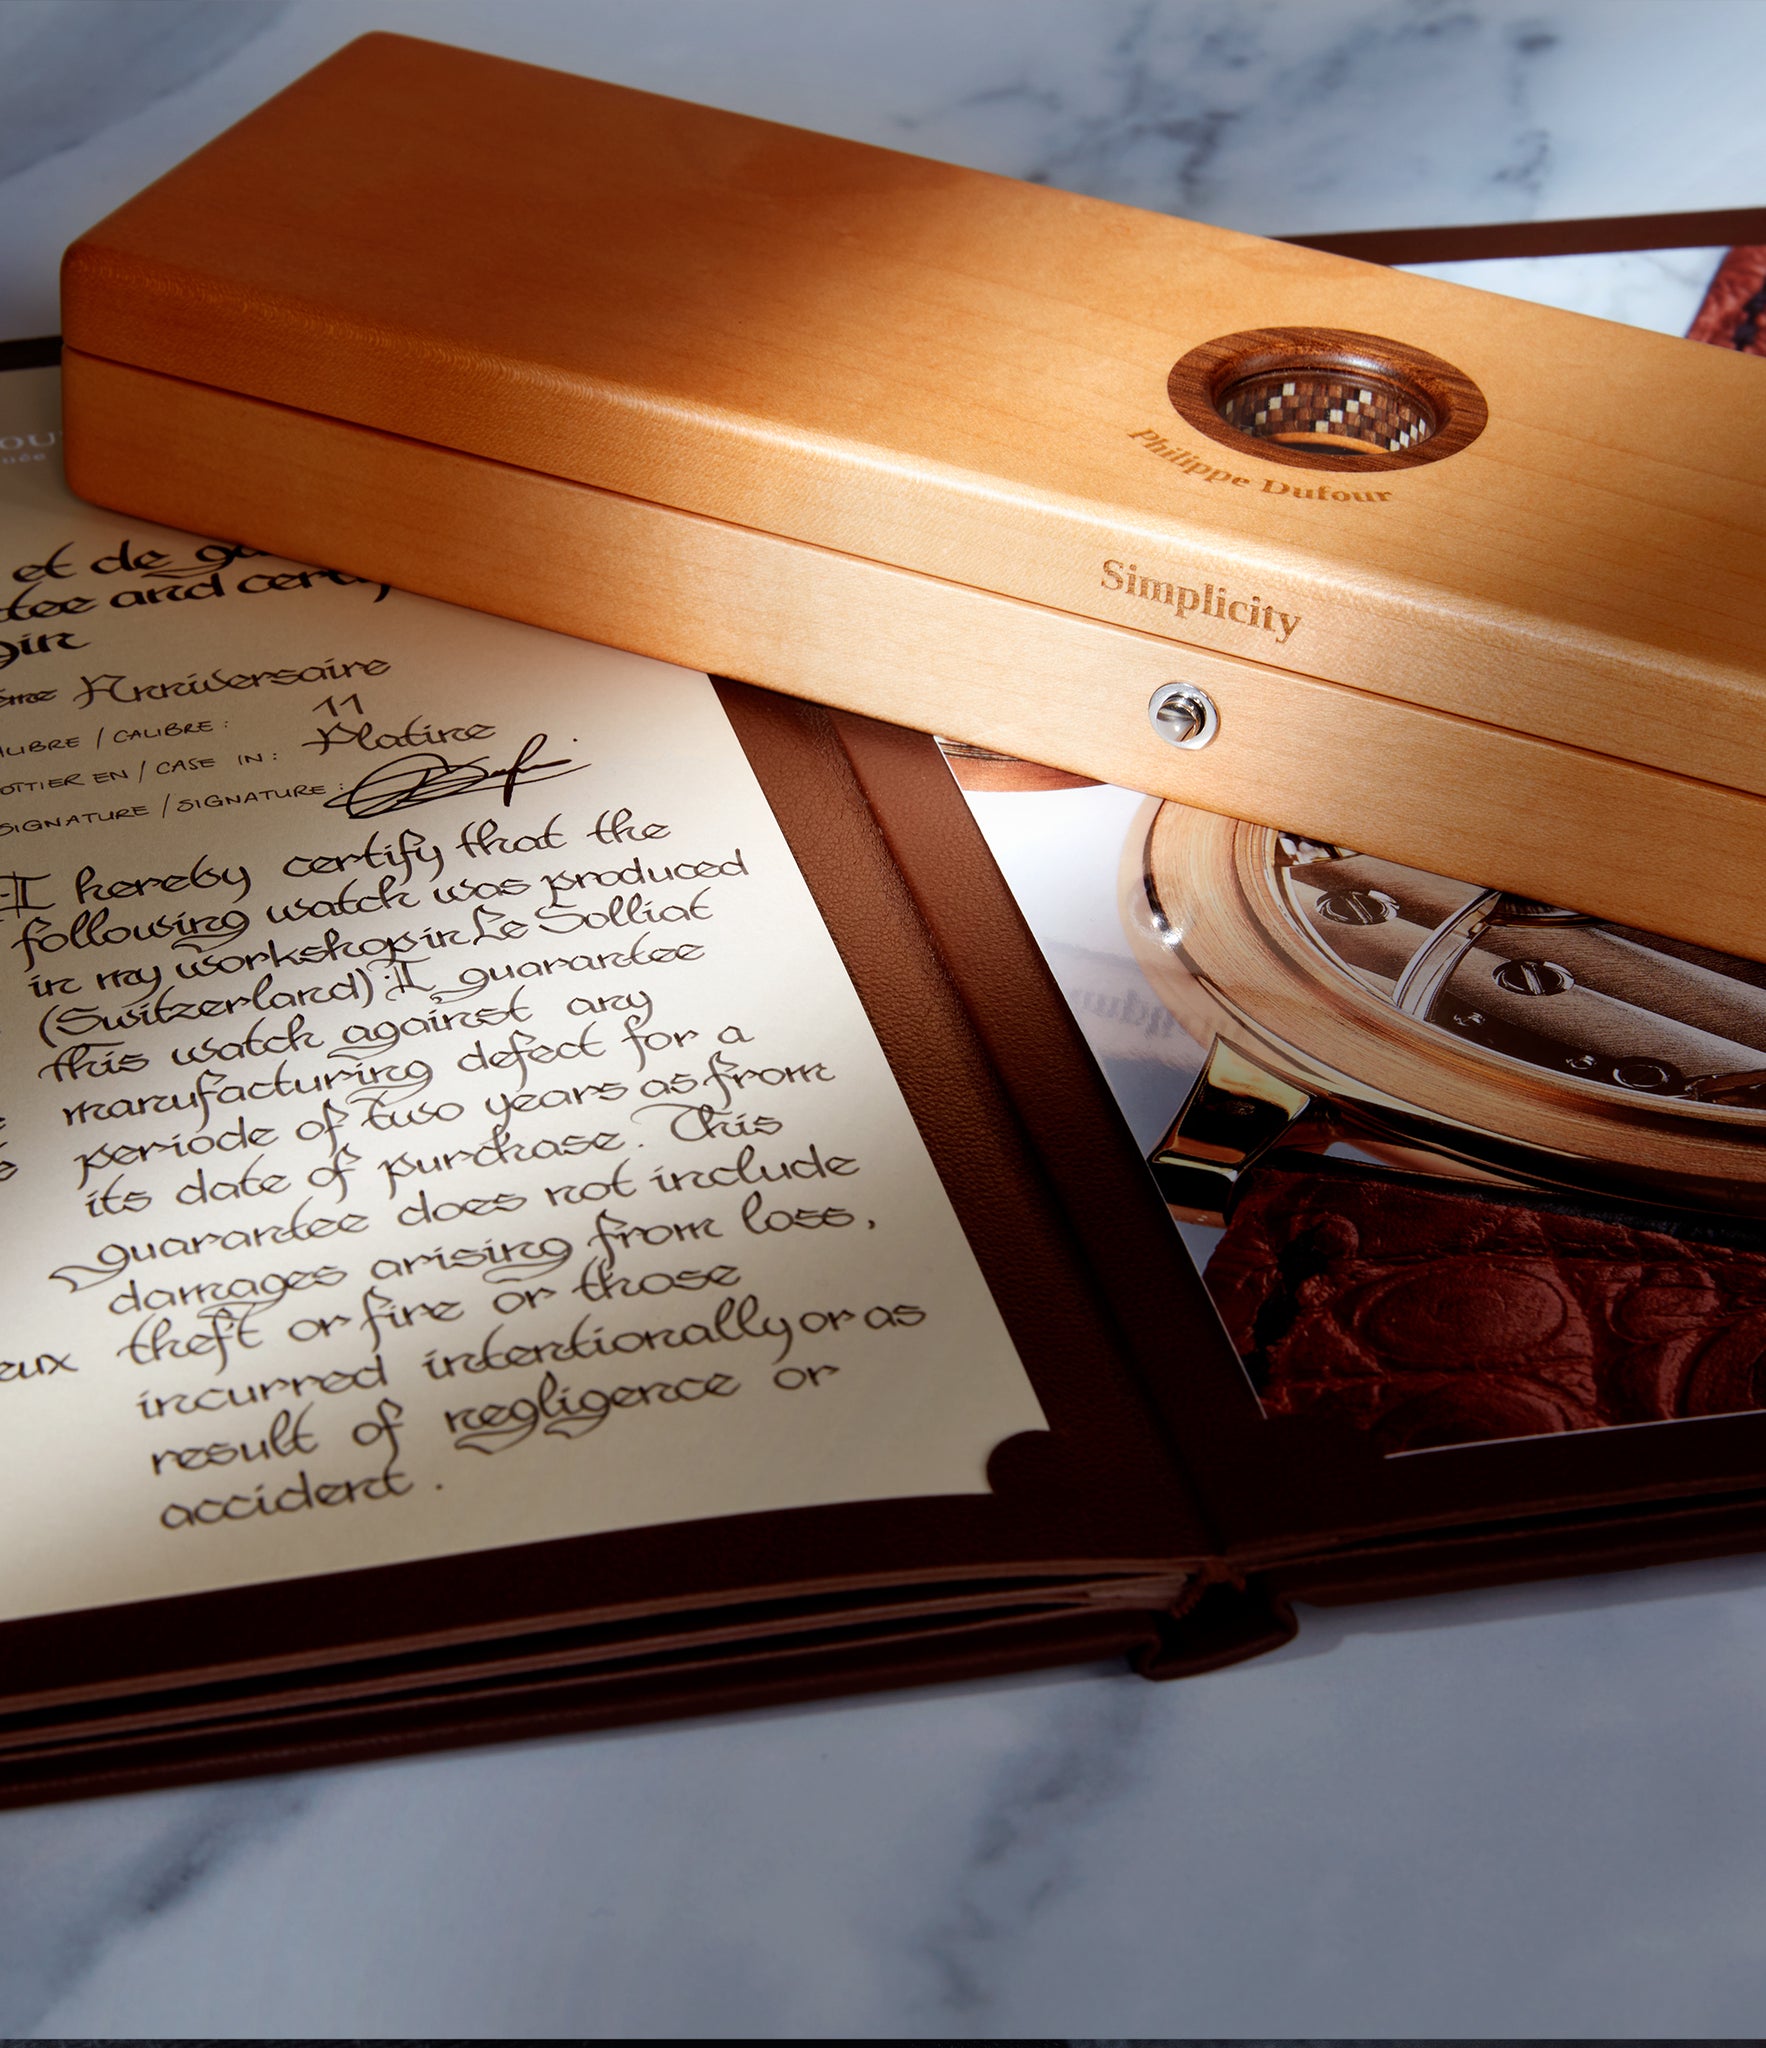 Philippe Dufour
Simplicity
et de
and
Anniversaire
/ CALIBRE : 11
EN / CASE IN : Platine
SIGNATURE / SIGNATURE :
I hereby certify that the
following watch was produced
in my workshop in Le Solliat
(Switzerland). I guarantee
this watch against any
manufacturing defect for a
periode of two years as from
its date of purchase. This
guarantee does not include
damages arising from loss,
theft or fire or those
incurred intentionally or as
result of negligence or
accident.